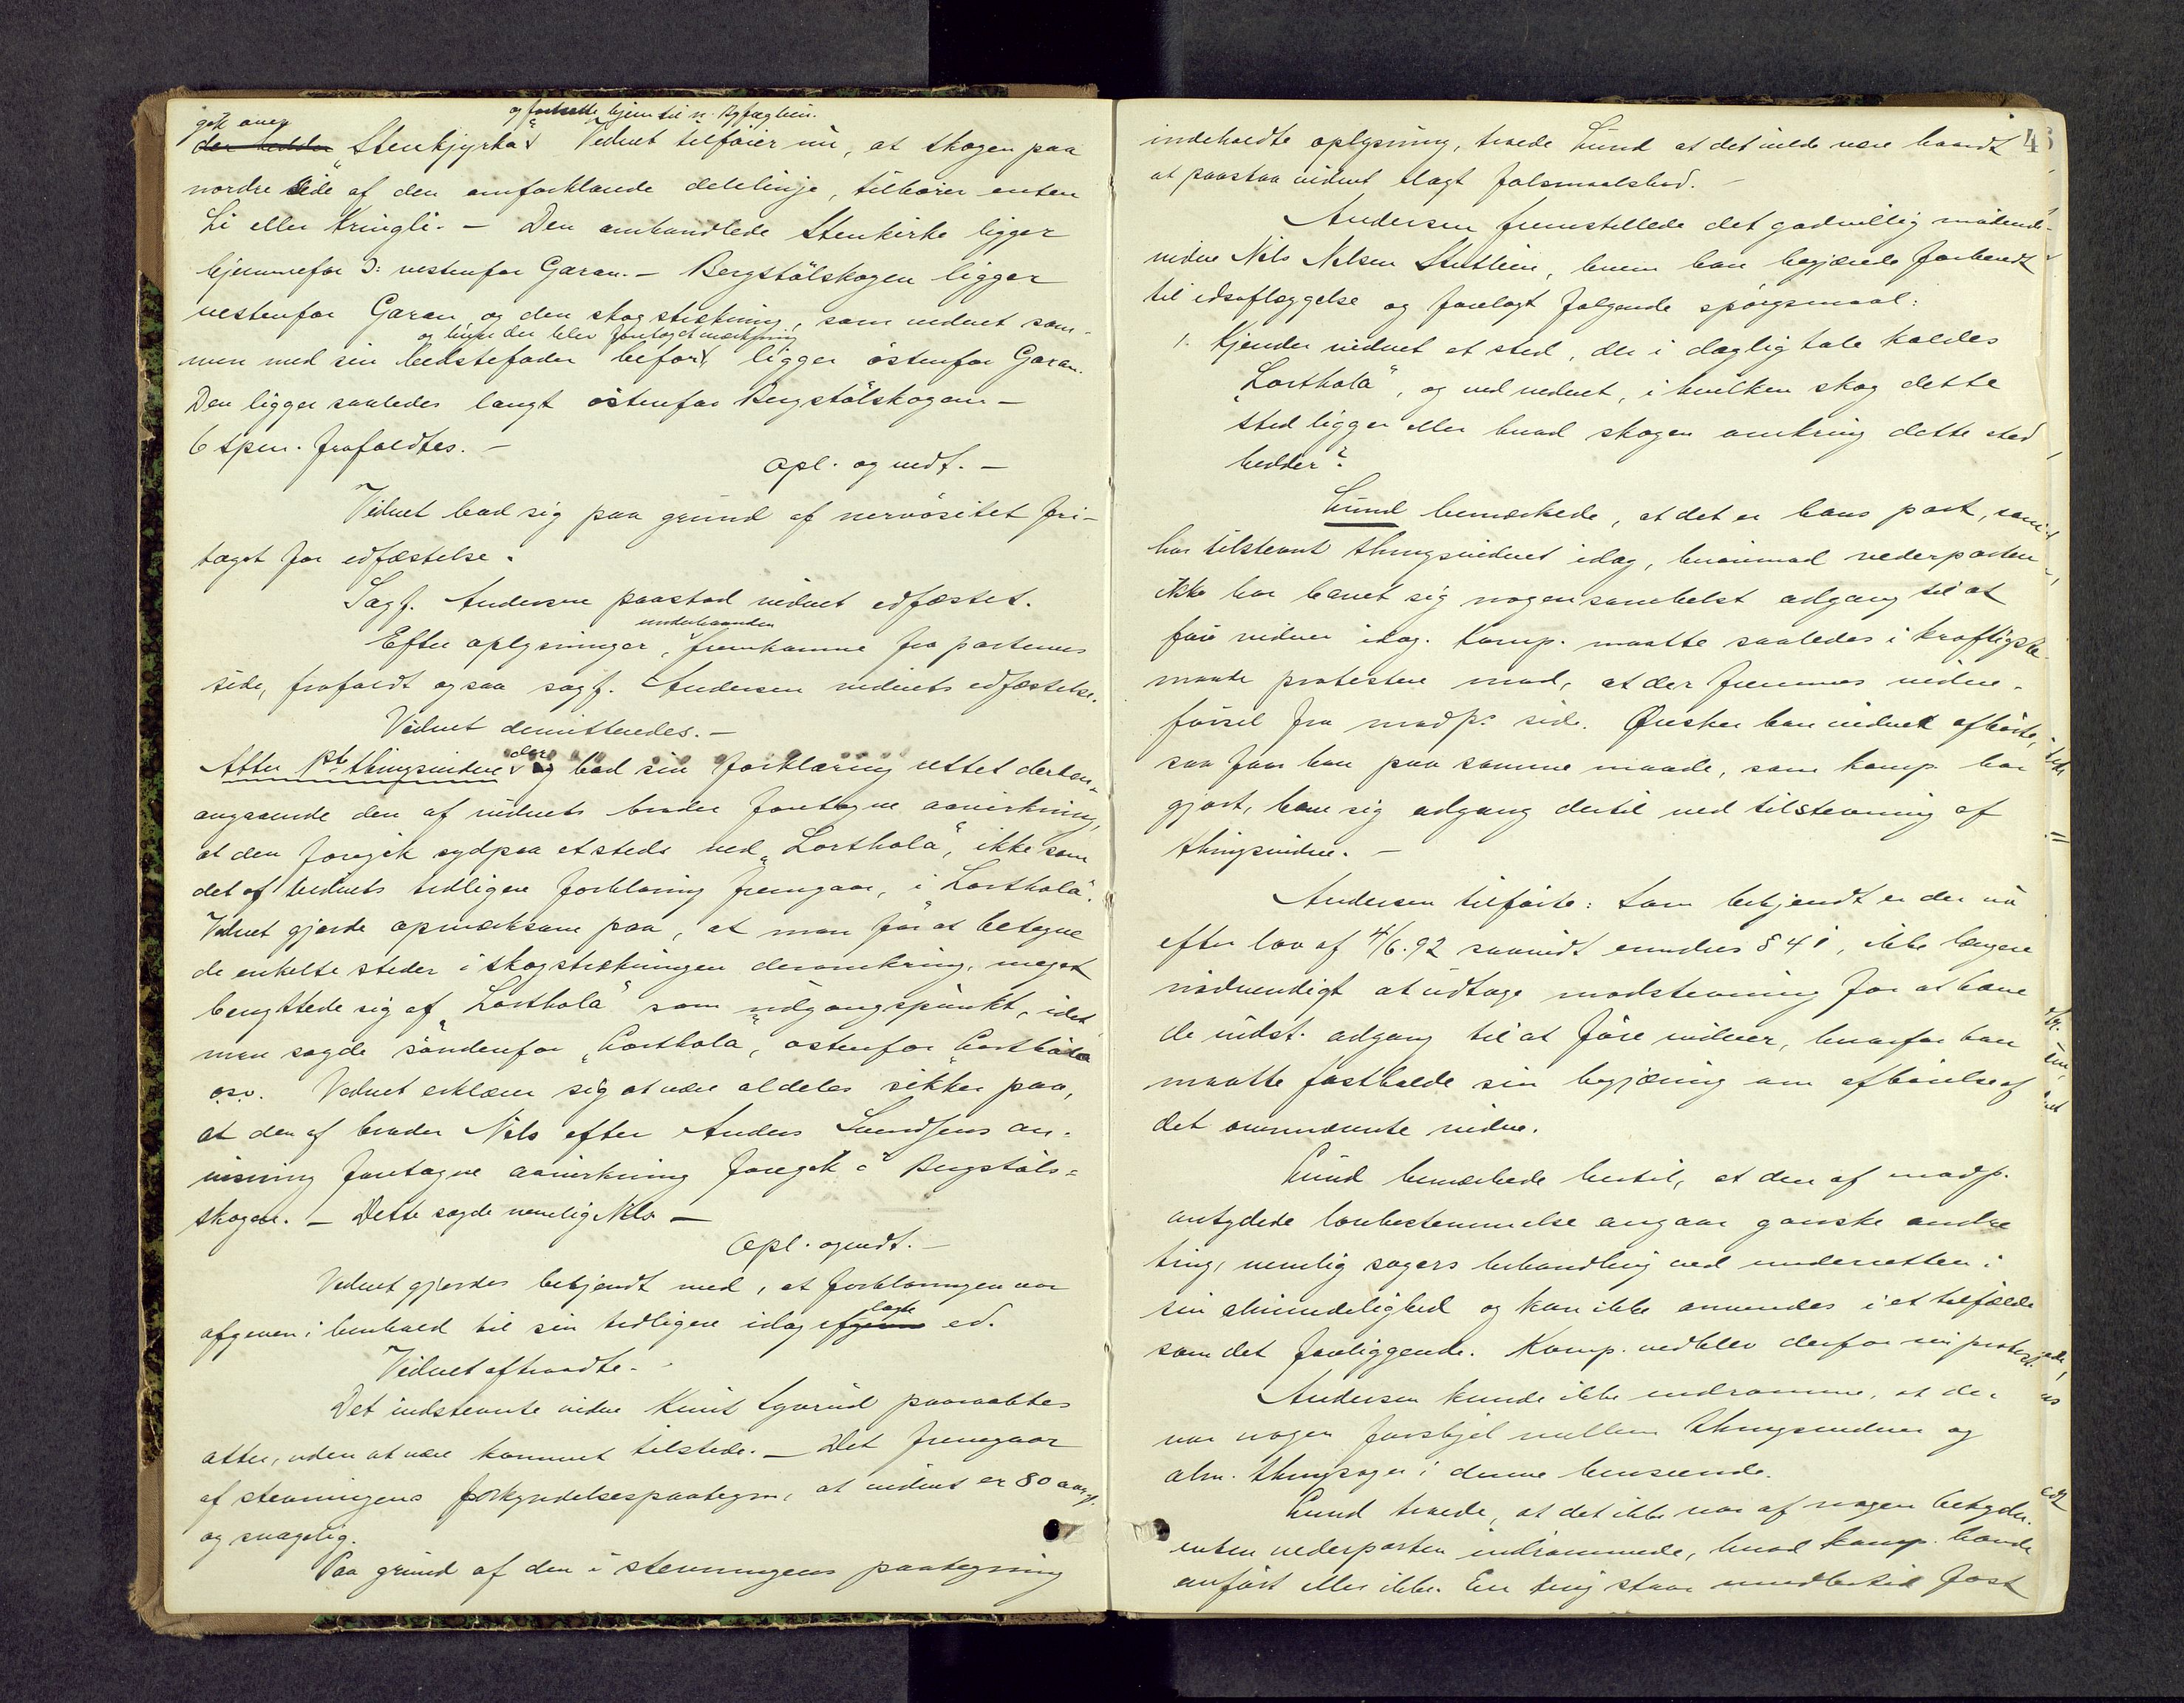 gik over
og fortsatte hjem til n. Bgfæglien.
der hedder „Stenkjyrka“. Vidnet tilføier nu, at skogen paa
nordre side af den omforklarede delelinje, tilhører enten
Li eller Kringli. — Den omhandlede Stenkirke ligger
hjemmefor ɔ: vestenfor Garan. — Bergstølskogen ligger
vestenfor Garan og den skogstrækning, som vidnet sam-
og hvor der blev foretaget mærkning
men med sin bedstefader befor, ligger østenfor Garan.
Den ligger saaledes langt østenfor Bergstølskogen —
6 spm. frafaldtes. —
Opl. og vedt. —
Vidnet bad sig paa grund af nervøsitet fri-
taget for edfæstelse.
Sagf. Andersen paastod vidnet edfæstet.
underhaanden
Efter oplysninger, fremkomne fra parternes
side, frafaldt ogsaa sagf. Andersen vidnets edfæstelse.
Vidnet demitteredes. —
Atter 1ste thingsvidne der bad sin forklaring rettet derhen
angaaende den af vidnets broder foretagne aavirkning,
at den foregik sydpaa etsteds ved „Lorthola“, ikke som
det af vidnets tidligere forklaring fremgaar, i „Lorthola“.
Vidnet gjorde opmærksom paa, at man for at betegne
de enkelte steder i skogstrækningen deromkring, meget
benyttede sig af „Lorthola“ som udgangspunkt, idet
man sagde søndenfor „Lorthola“, østenfor „Lorthola
osv. Vidnet erklærer sig at være aldeles sikker paa,
at den af broder Nils efter Anders Svendsens an-
visning foretagne aavirkning foregik i Bergstøls-
skogen. — Dette sagde nemlig Nils —
Opl. og vedt. —
Vidnet gjordes bekjendt med, at forklaringen var
aflagte
afgiven i henhold til sin tidligere idag ed.
Vidnet aftraadte.
Det indstevnte vidne Knut Lyvrud paaraabtes
atter, uden at være kommet tilstede. — Det fremgaar
af stevningens forkyndelsespaategn., at vidnet er 80 aar g.
og svagelig.
Paa grund af den i stevningens paategning
43
indeholdte oplysning, troede Lund at det vilde være haardt
at paastaa vidnet ilagt falsmaalsbod. —
Andersen fremstillede det godvillig mødende
vidne Nils Nilsen Stutlien, hvem han begjærede forberedt
til edsaflæggelse og forelagt følgende spørgsmaal:
1. Kjender vidnet et sted, der i daglig tale kaldes
„Lorthola“, og ved vidnet, i hvilken skog dette
sted ligger eller hvad skogen omkring dette sted
hedder?
Lund bemærkede, at det er hans part, som
har tilstevnt thingsvidnet idag, hvorimod vederparten
ikke har banet sig nogensomhelst adgang til at
føre vidner idag. Komp. maatte saaledes i kraftigste
maade protestere mod, at der fremmes vidne-
førsel fra modp.s side. Ønsker han vidnet afhørt,
saa faar han paa samme maade, som komp. har
gjort, bane sig adgang dertil ved tilstevning af
thingsvidne. —
Andersen tilførte: Som bekjendt er det nu
efter lov af 4/6.92 saavidt erindres § 41, ikke længere
nødvendigt at udtage modstevning for at have
de indst. adgang til at føre vidner, hvorfor han
maatte fastholde sin begjæring om afhørelse af
det omnævnte vidne.
Lund bemærkede hertil, at den af modp.
antydede lovbestemmelse angaar ganske andre
ting, nemlig sagers behandling ved underretten i
sin almindelighed og kan ikke anvendes i et tilfælde
som det foreliggende. Komp. vedblev derfor sin protest.
Andersen kunde ikke indrømme, at der
var nogen forskjel mellem thingsvidner og
alm. thingsager i denne henseende.
Lund troede, at det ikke var af nogen betydn.
enten vederparten indrømmede, hvad komp. havde
anført eller ikke. En ting staar imidlertid fast